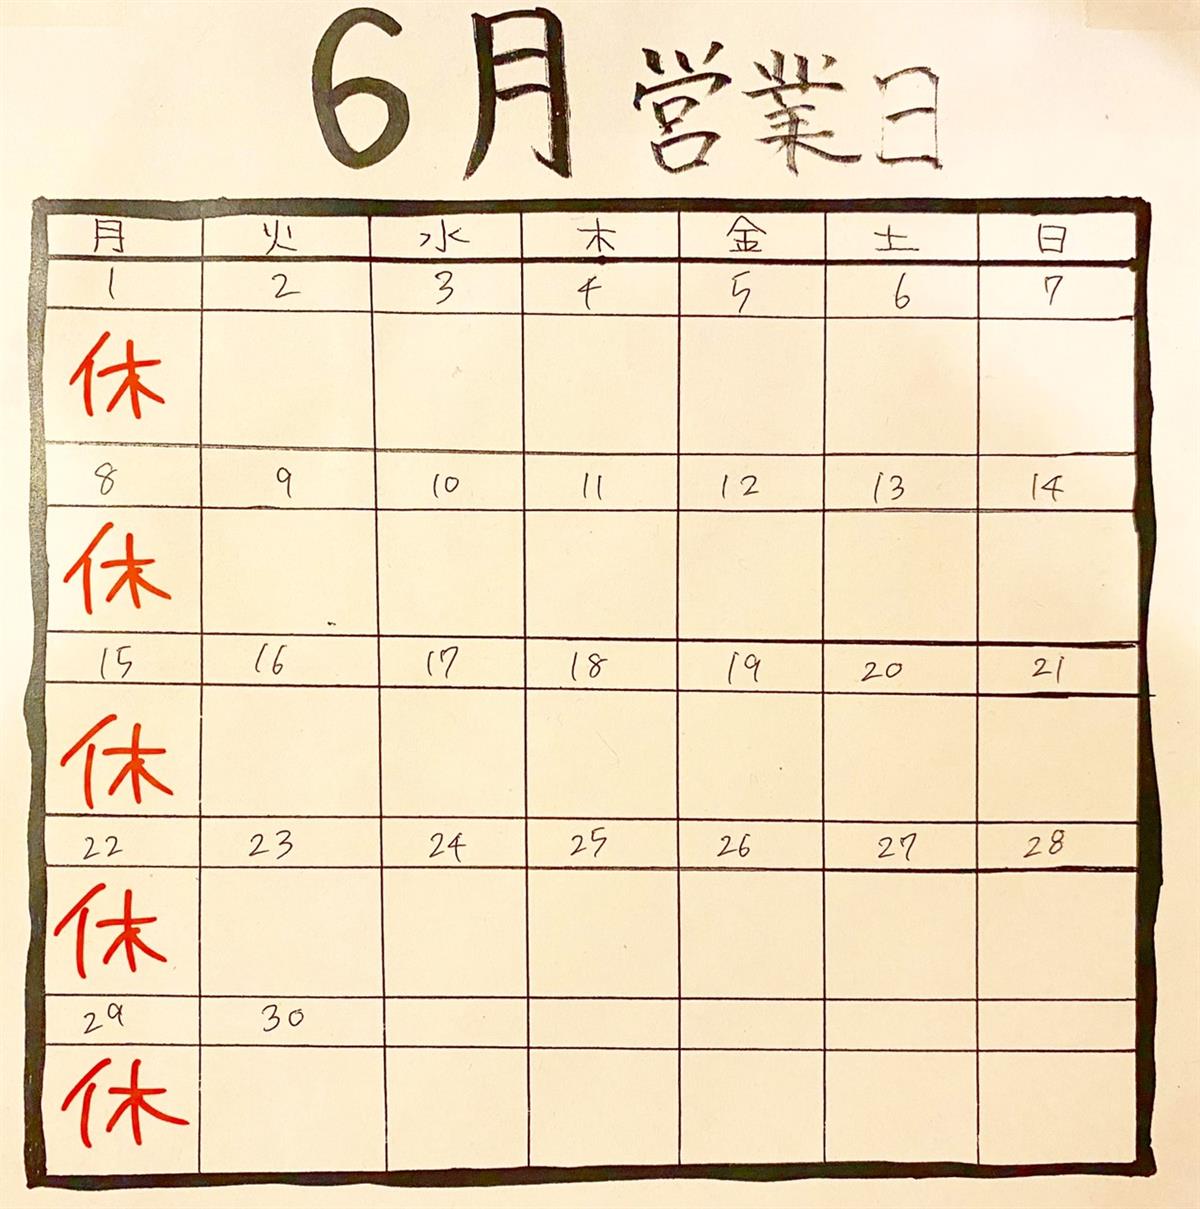 6月 営業日
月 火 水 木 金 土 日
1 2 3 4 5 6 7
休
8 9 10 11 12 13 14
休
15 16 17 18 19 20 21
休
22 23 24 25 26 27 28
休
29 30
休